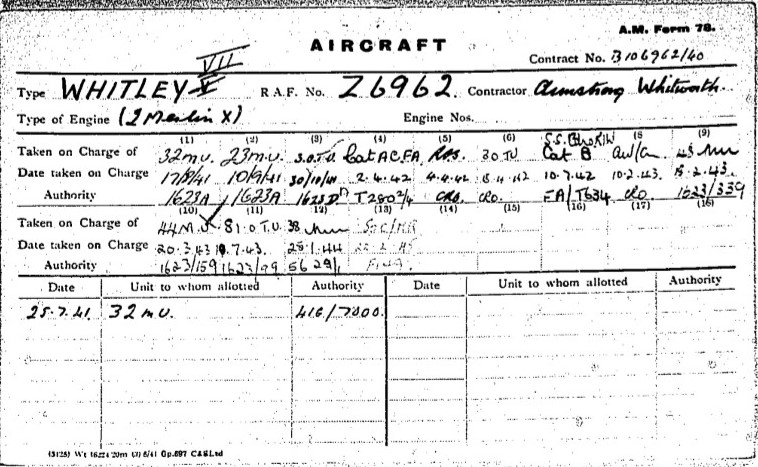 A.M. Form 78.
AIRCRAFT
Contract No. B106962/40
VII
Type WHITLEY V R.A.F. No. Z6962. Contractor Armstrong Whitworth.
Type of Engine (2 Merlin X) Engine Nos.
(1) (2) (3) (4) (5) (6) (8 (9)
Taken on Charge of 32 m.u. 23 m.u. 3.O.T.U. Cat AC FA ROS. 3 O TU Cat B 43 mu
Date taken on Charge 17/8/41 10/9/41 30/10/41 2.4.42 4.4.42 10.7.42 10.2.43. 2.43.
Authority 1623A 1623A 1623D T2802/4 CRO. CRO. EA/T634 CRO 1623/339
(10) (11) (12) (13) (14) (15) (16) (17) (18)
Taken on Charge of 44 M.U. 81.O.T.U. 38 mu
Date taken on Charge 20.3.43 7.43. 25.1.44
Authority 1623/159 1623/99 5629/1
Date Unit to whom allotted Authority Date Unit to whom allotted Authority
25.7.41. 32 m.u. 416/7000.
5/41 Gp.697 C&SLtd